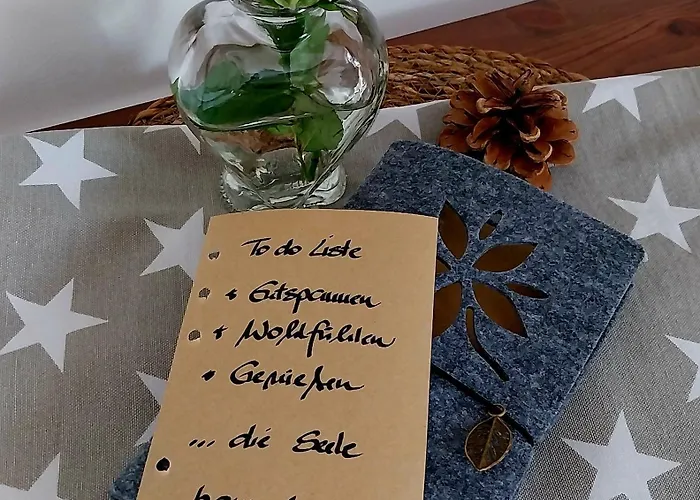 To do Liste
* Entspannen
* Wohlfühlen
* Genießen
... die Seele